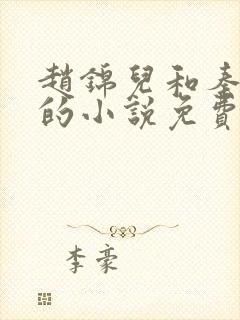 趙錦兒和秦
的小說免費
李豪